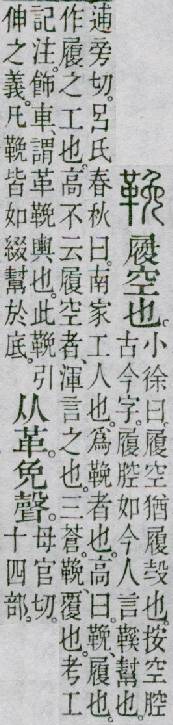 鞔履空也。
小徐曰。履空猶履㱿也。按空腔
古今字。履腔如今人言鞵幫也。
逋旁切。呂氏春秋曰。南家工人也。爲鞔者也。高曰。鞔、履也。
作履之工也。高不云履空者、渾言之也。三蒼。鞔、覆也。考工
記注。飾車、謂革鞔輿也。此鞔引
伸之義。凡鞔皆如綴幫於底。
从革。免聲。
母官切。
十四部。